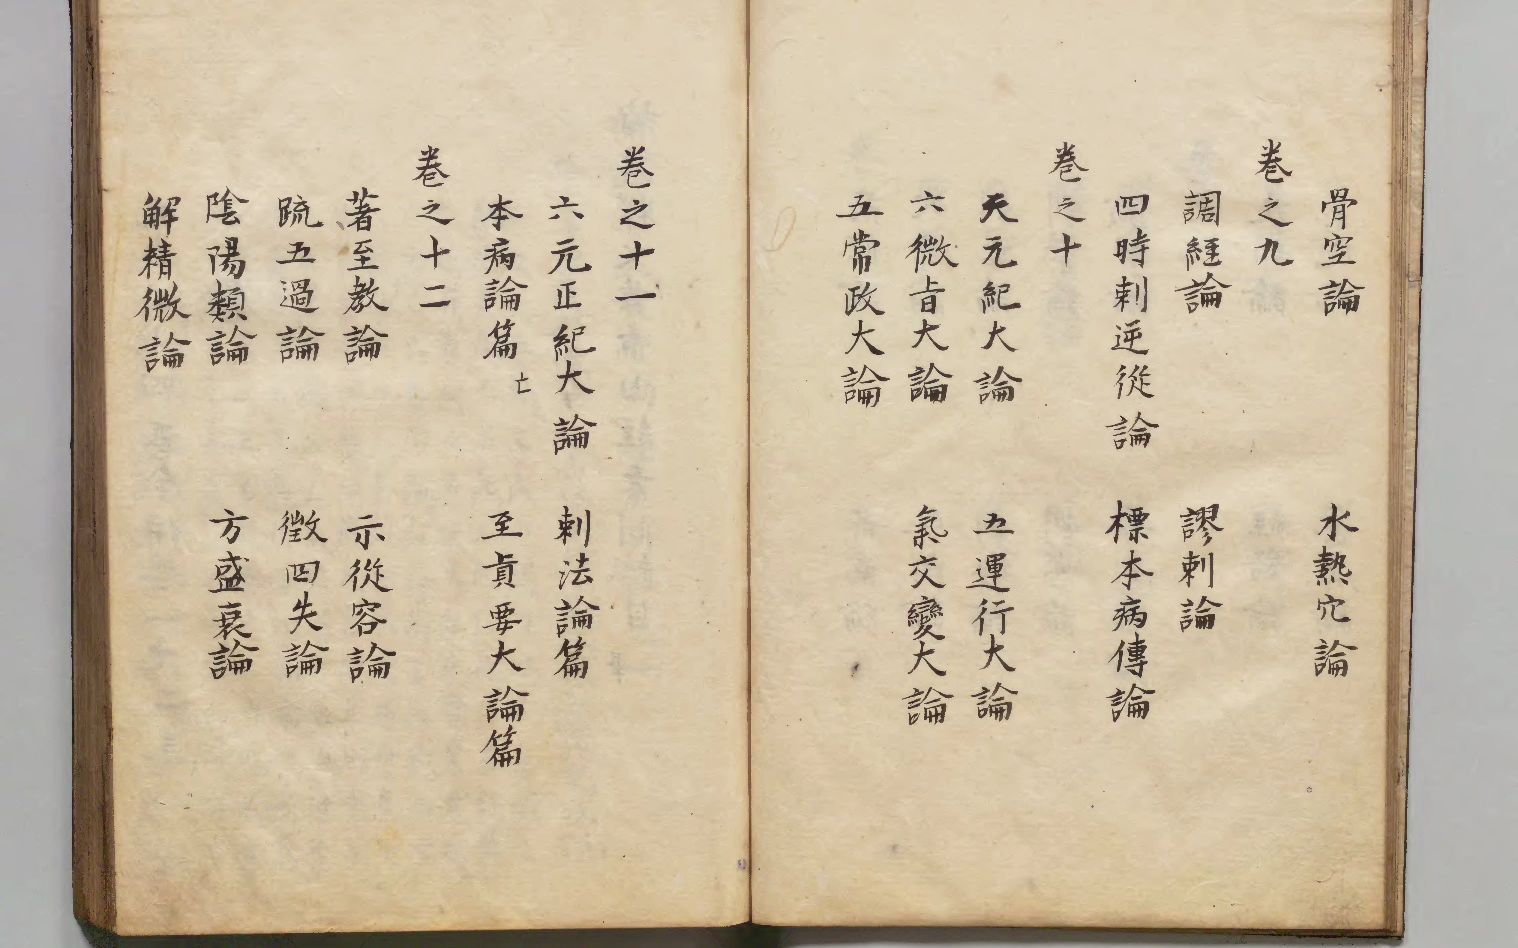 骨空論　水熱穴論
卷之九
調經論　謬刺論
四時刺逆從論　標本病傳論
卷之十
天元紀大論　五運行大論
六微旨大論　氣交變大論
五常政大論
卷之十一
六元正紀大論　刺法論篇
本病論篇亡　至真要大論篇
卷之十二
著至教論　示從容論
疏五過論　徵四失論
陰陽類論　方盛衰論
解精微論